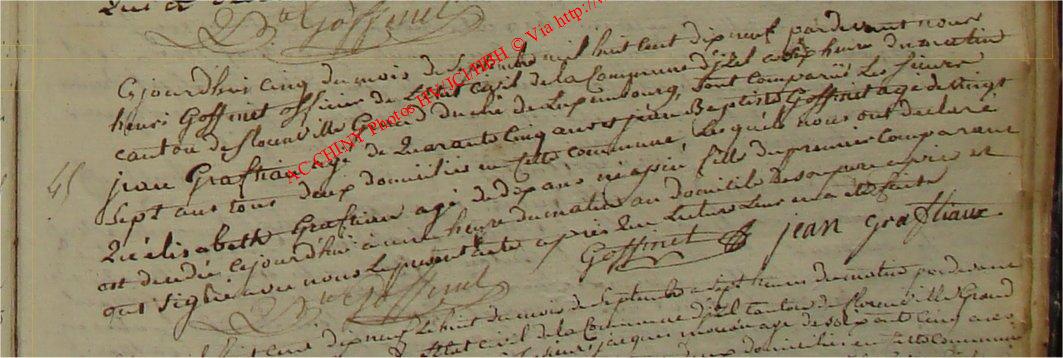 D. h Goffinet
Cejourd'hui cinq du mois de Septembre mil huit cent dix neuf pardevant nous
henri Goffinet officier de l'état civil de la Commune d'Izel a dix heure du matin
canton de florenville Grand duché de Luxembourg, sont comparus Les sieurs
45 jean Graftiau agé de Quarante Cinq ans et jean Baptiste Goffinet agé de vingt
Sept ans tous deux domiciliés en cette commune, Lesquels nous ont declaré
Qu'élisabeth Graftiau agé de dix ans né a fille du premier comparant
est decedée cejourd'hui à une heure du matin au domicile de son pere
ont Signé avec nous Le present acte apres Que Lecture Leur en a été faite
Goffinet jean Graftiaux
D. h Goffinet
huit cent dix neuf Le huit du mois de Septembre a Sept heures du matin pardevant
l'Etat civil de la Commune d'Izel canton de florenville Grand
jacques agé de soixante cinq ans
deux domiciliés en cette Commune
AC CHINY Photos HV JCI HBH © Via http://w